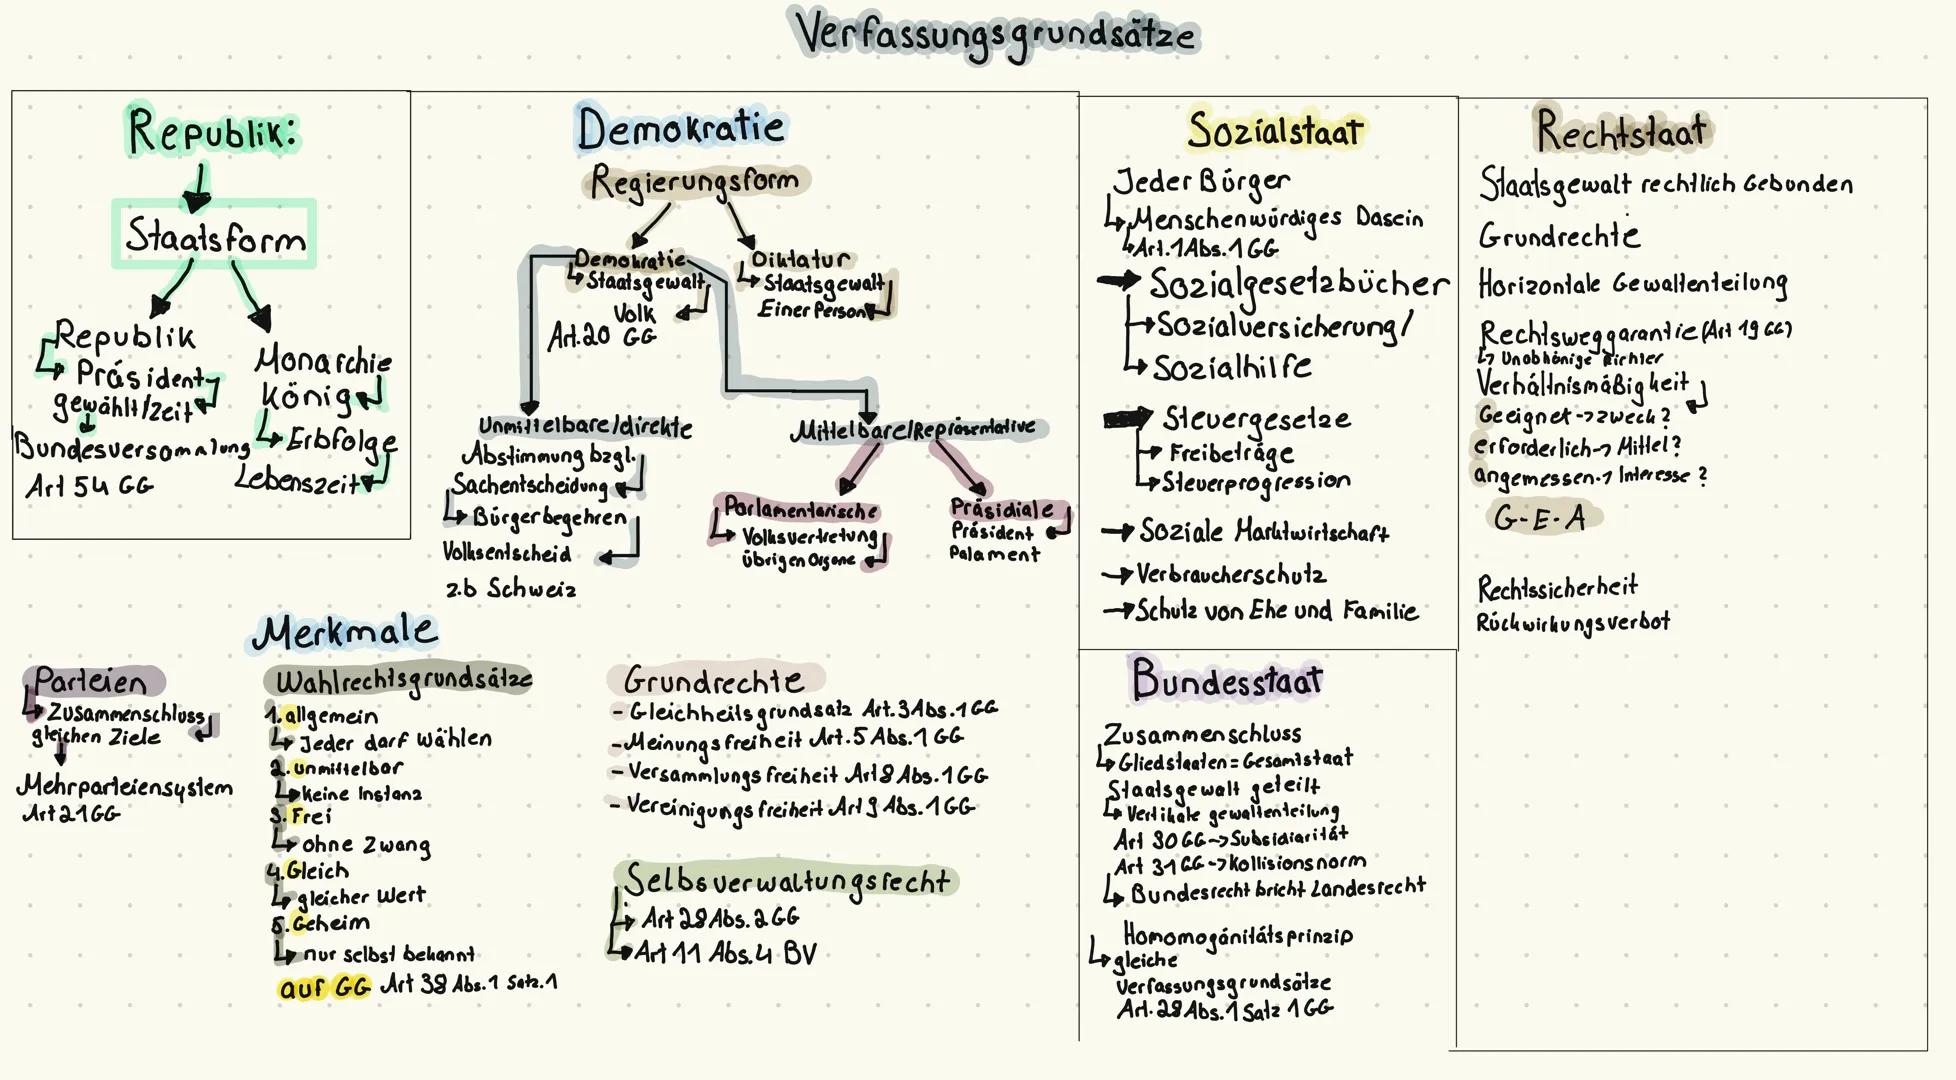 Verfassungsgrundsätze
Republik:
Staatsform
Republik
Präsident
gewählt/Zeit
Bundesversammlung
Art 54 GG
Monarchie
König
Erbfolge
Lebenszeit
Demokratie
Regierungsform
Demokratie
Staatsgewalt
Volk
Art.20 GG
Diktatur
Staatsgewalt
Einer Person
Unmittelbare/direkte
Abstimmung bzgl.
Sachentscheidung
Bürgerbegehren
Volksentscheid
z.b Schweiz
Mittelbare/Repräsentative
Parlamentarische
Volksvertretung
übrigen Organe
Präsidiale
Präsident
Palament
Merkmale
Parteien
Zusammenschluss
gleichen Ziele
Mehrparteiensystem
Art 21 GG
Wahlrechtsgrundsätze
1. allgemein
Jeder darf wählen
2. unmittelbar
keine Instanz
3. Frei
ohne Zwang
4. Gleich
gleicher Wert
5. Geheim
nur selbst bekannt
auf GG Art 38 Abs.1 Satz.1
Grundrechte
- Gleichheitsgrundsatz Art.3 Abs.1 GG
- Meinungsfreiheit Art.5 Abs.1 GG
- Versammlungsfreiheit Art 8 Abs.1 GG
- Vereinigungsfreiheit Art 9 Abs.1 GG
Selbsverwaltungsrecht
Art 28 Abs.2 GG
Art 11 Abs.4 BV
Sozialstaat
Jeder Bürger
Menschenwürdiges Dasein
Art.1 Abs.1 GG
Sozialgesetzbücher
Sozialversicherung/
Sozialhilfe
Steuergesetze
Freibeträge
Steuerprogression
Soziale Marktwirtschaft
Verbraucherschutz
Schutz von Ehe und Familie
Bundesstaat
Zusammenschluss
Gliedstaaten = Gesamtstaat
Staatsgewalt geteilt
Vertikale gewaltenteilung
Art 30 GG -> Subsidiarität
Art 31 GG -> Kollisionsnorm
Bundesrecht bricht Landesrecht
Homomogänitätsprinzip
gleiche
Verfassungsgrundsätze
Art.28 Abs.1 Satz 1 GG
Rechtstaat
Staatsgewalt rechtlich Gebunden
Grundrechte
Horizontale Gewaltenteilung
Rechtsweggarantie (Art 19 GG)
Unabhänige Richter
Verhältnismäßigkeit
Geeignet -> zweck?
erforderlich -> Mittel?
angemessen -> Interesse?
G-E-A
Rechtssicherheit
Rückwirkungsverbot